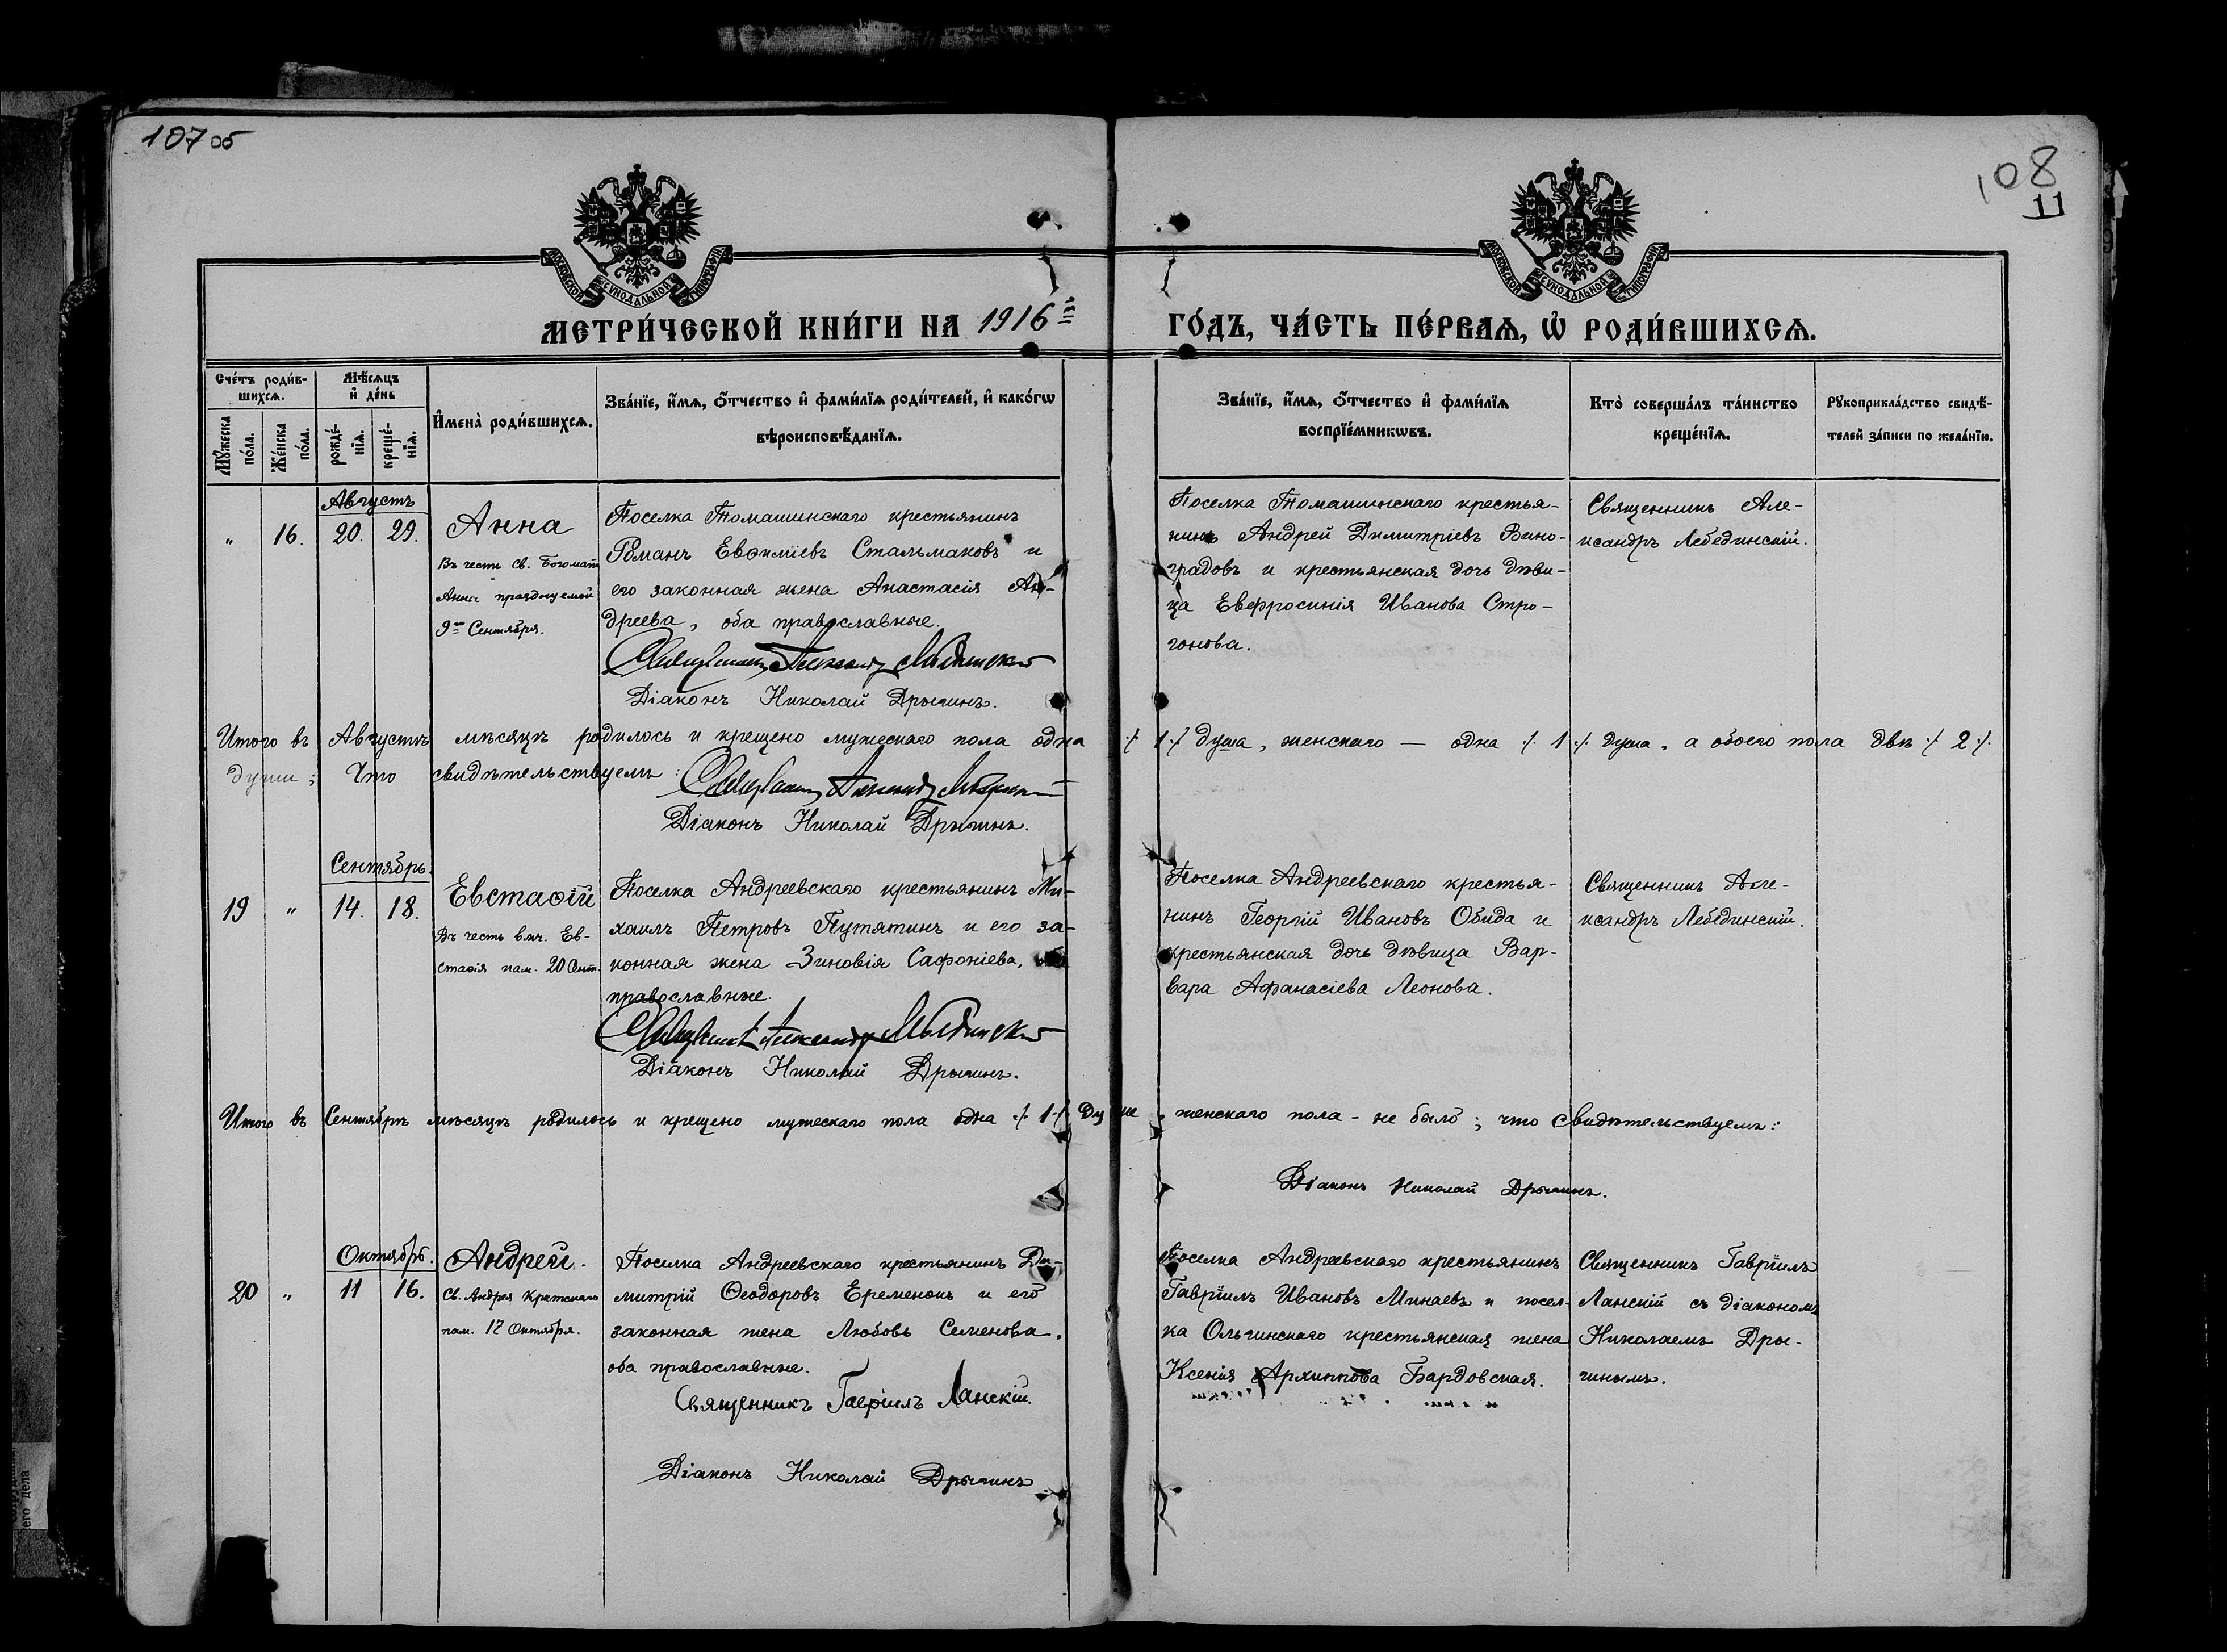 107 об
108
11
МОСКОВСКОЙ СѴНОДАЛЬНОЙ ТИПОГРАФІИ
МОСКОВСКОЙ СѴНОДАЛЬНОЙ ТИПОГРАФІИ
МЕТРИ́ЧЕСКОЙ КНИ́ГИ НА 1916й ГО́ДЪ, ЧА́СТЬ ПЕ́РВАѦ, Ѽ РОДИ́ВШИХСѦ.
Сче́тъ роди́в-
шихсѧ.
Мѣ́сѧцъ
и҆ де́нь
И҆мена̀ роди́вшихсѧ.
Зва́нїе, и҆́мѧ, ѻ҆́тчество и҆ фами́лїѧ роди́телей, и҆ како́гѡ
вѣроисповѣ́данїѧ.
Зва́нїе, и҆́мѧ, ѻ҆́тчество и҆ фами́лїѧ
воспрїе́мникѡвъ.
Кто̀ соверша́лъ та́инство
креще́нїѧ.
Рꙋкоприкла́дство свидѣ́-
телей за́писи по жела́нїю.
Мꙋ́жеска
по́ла.
Же́нска
по́ла.
рожде́-
нїѧ.
креще́-
нїѧ.
Августъ
" 16. 20. 29.
Анна
Въ честь св. Богомат
Анны празднуемой
9го Сентября.
Поселка Томашинскаго крестьянинъ
Романъ Евфиміевъ Стальмаковъ и
его законная жена Анастасія Ан-
дреева, оба православные.
Священникъ Александръ Лебединскій
Діаконъ Николай Дрыгинъ.
Поселка Томашинскаго крестья-
нинъ Андрей Димитріевъ Вино-
градовъ и крестьянская дочь дѣви-
ца Евфросинія Иванова Стро-
гонова.
Священникъ Але-
ксандръ Лебединскій.
Итого въ Августѣ мѣсяцѣ родилось и крещено мужескаго пола одна ·/· 1 ·/· душа, женскаго — одна ·/· 1 ·/· душа, а обоего пола двѣ ·/· 2 ·/·
души; Что свидѣтельствуемъ: Священникъ Александръ Лебединскій
Діаконъ Николай Дрыгинъ.
Сентябрь.
19 " 14. 18.
Евстафій
Въ честь вмч. Ев-
стафія пам. 20 Сент.
Поселка Андреевскаго крестьянинъ Ми-
хаилъ Петровъ Путятинъ и его за-
конная жена Зиновія Сафоніева, оба
православные.
Священникъ Александръ Лебединскій
Діаконъ Николай Дрыгинъ.
Поселка Андреевскаго крестья-
нинъ Георгій Ивановъ Обида и
крестьянская дочь дѣвица Вар-
вара Афанасіева Леонова.
Священникъ Але-
ксандръ Лебединскій.
Итого въ Сентябрѣ мѣсяцѣ родилось и крещено мужескаго пола одна ·/· 1 ·/· , женскаго пола - не было; что свидѣтельствуемъ:
Діаконъ Николай Дрыгинъ.
Октябрь.
20 " 11 16.
Андрей.
Св. Андрея Критскаго
пам. 17 Октября.
Поселка Андреевскаго крестьянинъ Ди-
митрій Ѳеодоровъ Еременокъ и его
законная жена Любовь Семенова,
оба православные.
Священникъ Гавріилъ Ланскій.
Діаконъ Николай Дрыгинъ
Поселка Андреевскаго крестьянинъ
Гавріилъ Ивановъ Минаевъ и посел-
ка Ольгинскаго крестьянская жена
Ксенія Архиппова Бардовская.
Священникъ Гавріилъ
Ланскій съ діакономъ
Николаемъ Дры-
гинымъ.
его дела